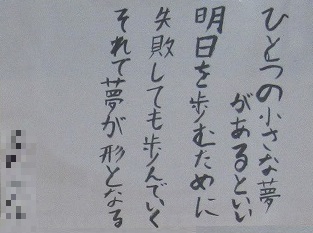 ひとつの小さな夢
があるといい
明日を歩むために
失敗しても歩んでいく
それで夢が形となる